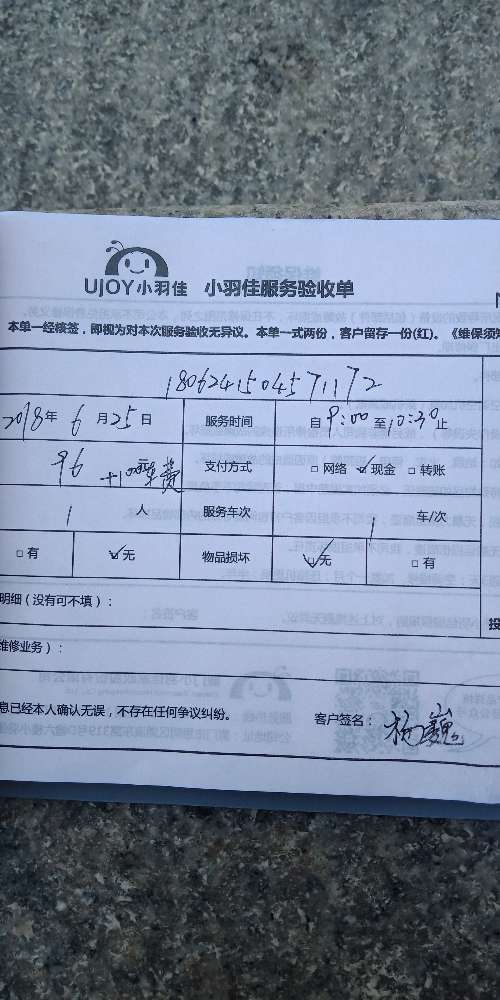 UJOY小羽佳 小羽佳服务验收单
本单一经核签，即视为对本次服务验收无异议。本单一式两份，客户留存一份(红)。《维保须知
1806241504571172
2018年 6 月 25 日 服务时间 自 9:00 至 10:30 止
96 支付方式 □ 网络 ☑ 现金 □ 转账
1 人 服务车次 1 车/次
□ 有 ☑ 无 物品损坏 ☑ 无 □ 有
明细（没有可不填）：
维修业务）：
息已经本人确认无误，不存在任何争议纠纷。 客户签名： 杨巍